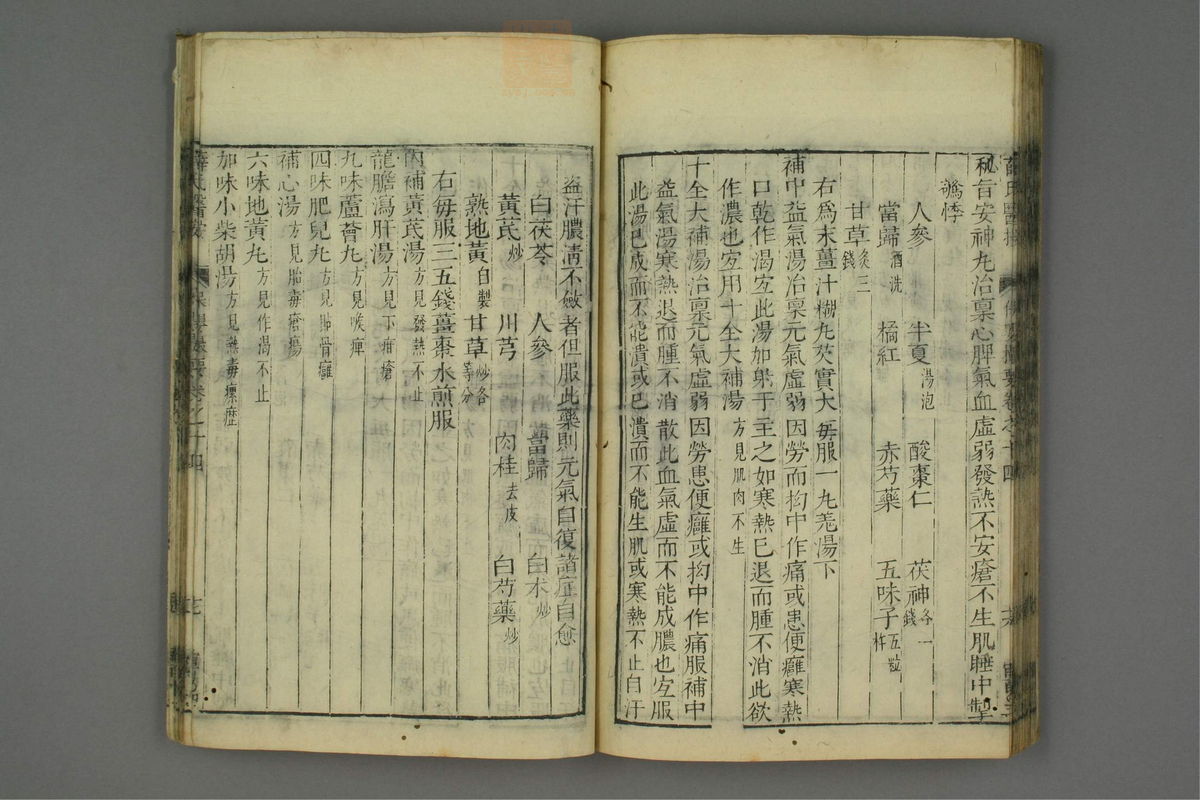 秘旨安神丸治稟心脾氣血虛弱發熱不安瘡不生肌睡中掣
驚悸
人參 半夏湯泡 酸棗仁 茯神各一錢
當歸酒洗 橘紅 赤芍藥 五味子五粒杵
甘草炙三錢
右爲末薑汁糊丸芡實大每服一丸羗湯下
補中益氣湯治稟元氣虛弱因勞而抅中作痛或患便癰寒熱
口乾作渴宐此湯加射于主之如寒熱已退而腫不消此欲
作濃也宐用十全大補湯方見肌肉不生
十全大補湯治稟元氣虛弱因勞患便癰或抅中作痛服補中
益氣湯寒熱退而腫不消散此血氣虛而不能成膿也宐服
此湯已成而不能潰或已潰而不能生肌或寒熱不止自汗
盗汗膿清不斂者但服此藥則元氣自復諸症自愈
白茯苓 人參 當歸 白术炒
黃茋炒 川芎 肉桂去皮 白芍藥炒
熟地黃自製 甘草炒各等分
右每服三五錢薑棗水煎服
內補黃茋湯方見發熱不止
龍膽瀉肝湯方見下疳瘡
九味蘆薈丸方見喉痺
四味肥兒丸方見貼骨癰
補心湯方見胎毒瘡瘍
六味地黃丸方見作渴不止
加味小柴胡湯方見熱毒瘰癧
薛氏醫按
保嬰撮要卷之十四